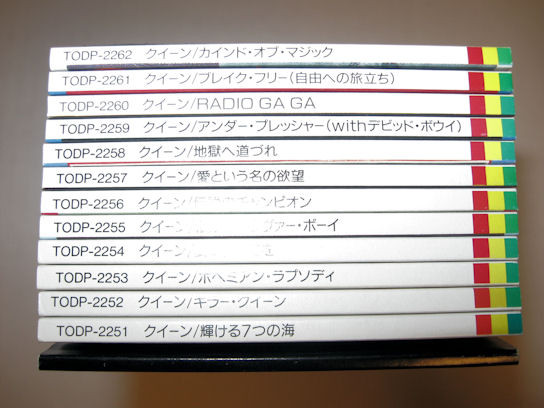 TODP-2262 クイーン/カインド・オブ・マジック
TODP-2261 クイーン/ブレイク・フリー(自由への旅立ち)
TODP-2260 クイーン/RADIO GA GA
TODP-2259 クイーン/アンダー・プレッシャー(withデビッド・ボウイ)
TODP-2258 クイーン/地獄へ道づれ
TODP-2257 クイーン/愛という名の欲望
TODP-2256 クイーン/ チャンピオン
TODP-2255 クイーン/ ヴァー・ボーイ
TODP-2254 クイーン/
TODP-2253 クイーン/ボヘミアン・ラプソディ
TODP-2252 クイーン/キラー・クイーン
TODP-2251 クイーン/輝ける7つの海